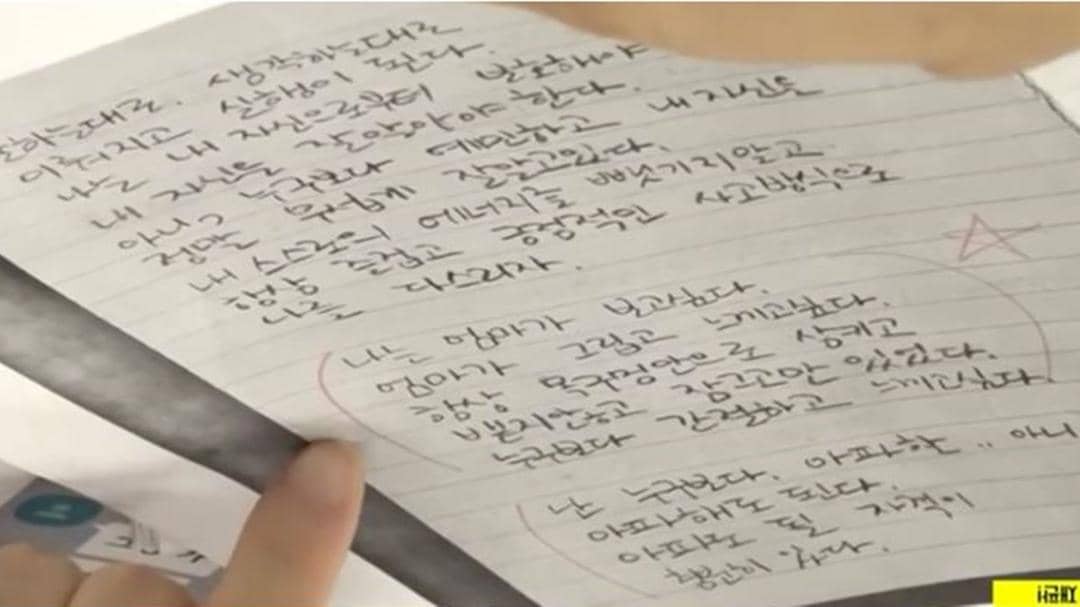 말하는대로. 생각하는대로
이뤄지고 실행이 된다.
나는 내 자신으로부터 보호해야
내 자신을 잘알아야한다.
아니 누구보다 예민하고 내자신을
정말 무섭게 잘알고있다.
내 스스로의 에너지를 뺏기지않고
항상 즐겁고 긍정적인 사고방식으로
나를 다스리자.
나는 엄마가 보고싶다.
엄마가 그립고 느끼고싶다.
항상 목구멍안으로 삼키고
뱉지않고 잠그고만 있었다.
누구보다 간절하고 느끼고싶다.
난 누구보다. 아파한.. 아니
아파해도 된다.
아파도 될 자격이
충분히 있다.